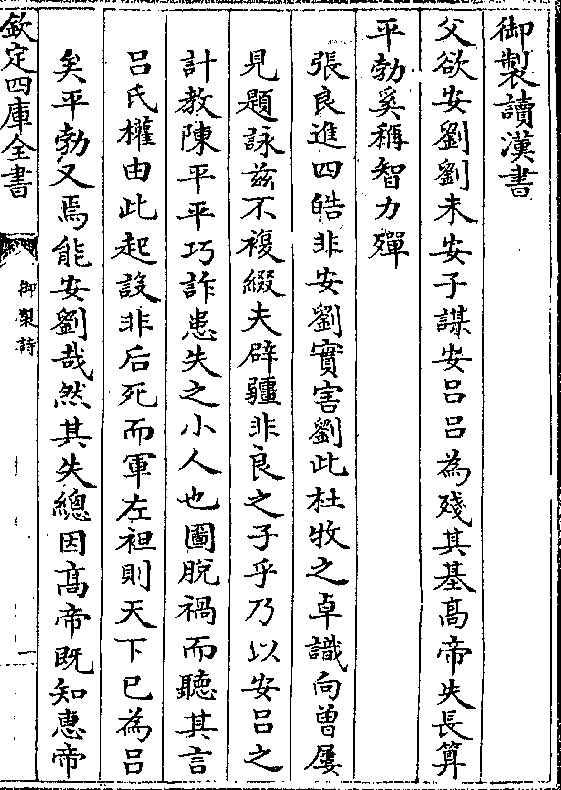 御製讀漢書
父欲安劉劉未安子謀安呂呂為殘其基髙帝失長算
平勃奚稱智力殫
張良進四皓非安劉實害劉此杜牧之卓識向曾屢
見題詠兹不複綴夫辟疆非良之子乎乃以安呂之
計教陳平平巧詐患失之小人也圖脫禍而聽其言
呂氏權由此起設非后死而軍左袒則天下已為呂
矣平勃又焉能安劉哉然其失總因髙帝既知惠帝
欽定四庫全書
御製詩
一